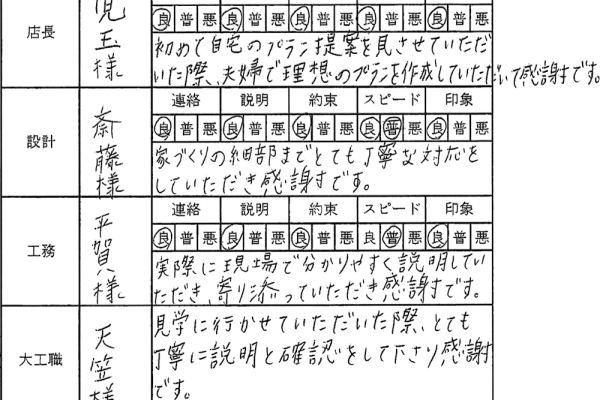 店長
児玉様
良 普 悪 良 普 悪 良 普 悪 良 普 悪 良 普 悪
初めて自宅のプラン提案を見させていただ
いた際、夫婦で理想のプランを作成していただいて感謝です。
設計
斎藤様
連絡 説明 約束 スピード 印象
良 普 悪 良 普 悪 良 普 悪 良 普 悪 良 普 悪
家づくりの細部までとても丁寧な対応を
していただき感謝です。
工務
平賀様
連絡 説明 約束 スピード 印象
良 普 悪 良 普 悪 良 普 悪 良 普 悪 良 普 悪
実際に現場で分かりやすく説明してい
ただき、寄り添っていただき感謝です。
大工職
天笠様
見学に行かせていただいた際、とても
丁寧に説明と確認をして下さり感謝
です。